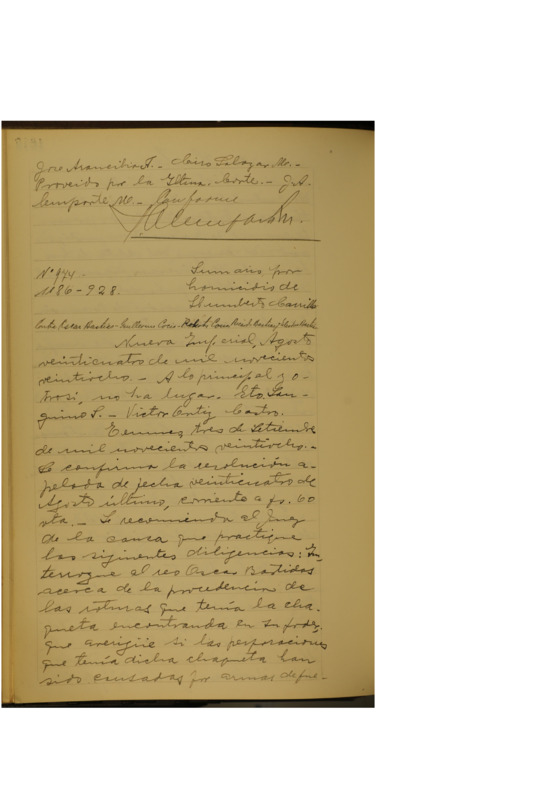 Jose Arancibia A. - Ciro Salazar M. -
Proveido por la Iltma. Corte. - J. A.
Camporte M. - Conforme
Nº 944 -
Nº 86-928.
Sumario por
homicidio de
Humberto Carrillo
Contra Oscar Bastias - Guillermo
Nueva Imperial, Agosto
veinticuatro de mil novecientos
veintiocho. - A lo principal y o-
trosi, no ha lugar. Eto. San-
guino S. - Victor Ortiz Castro.
Temuco, tres de Setiembre
de mil novecientos veintiocho. -
Se confirma la resolución a-
pelada de fecha veinticuatro de
Agosto último, corriente a fs. 60
vta. - Se recomienda al Juez
de la causa que practique
las siguientes diligencias: In-
terrogue al reo Oscar Bastidas
acerca de la procedencia de
las roturas que tenía la cha-
queta encontrada en su poder;
que averigüe si las perforaciones
que tenía dicha chaqueta han
sido causadas por armas de fue-